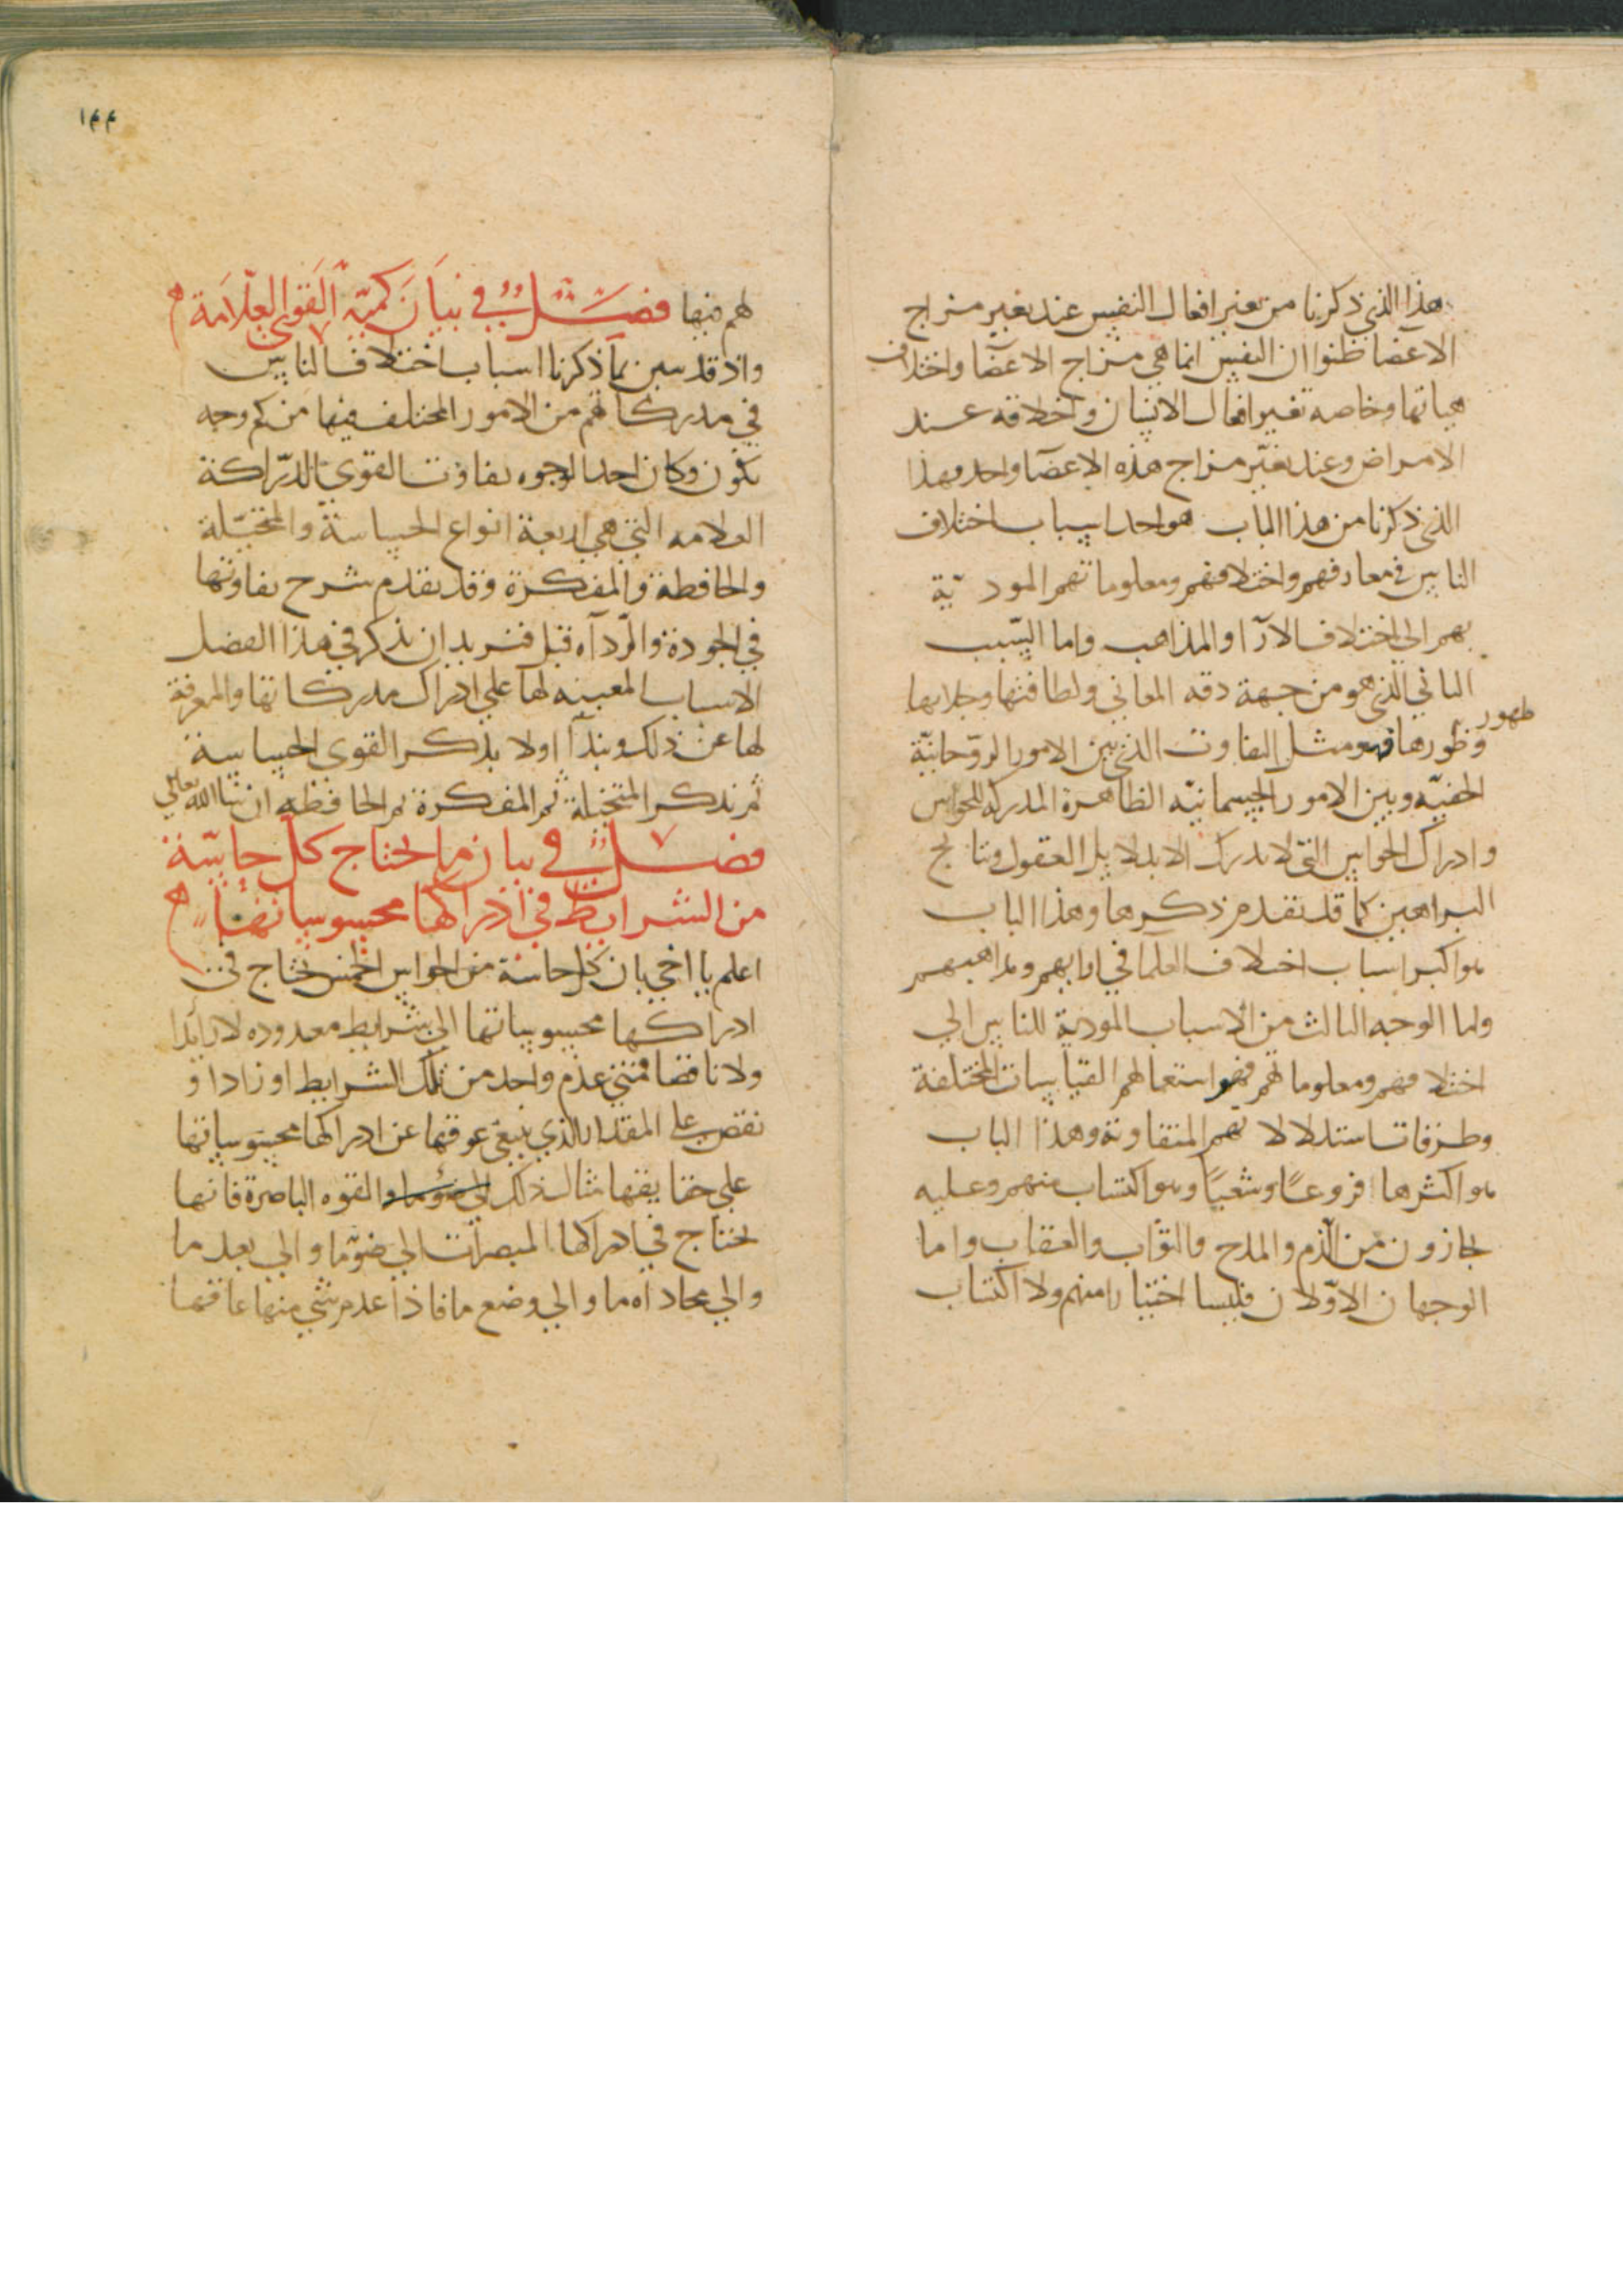 هذا الذي ذكرنا من تغير افعال النفس عند تغير مزاج
الاعضا ظنوا ان النفس انما هي مزاج الاعضا واختلاف
هياتها وخاصه تغير افعال الانسان واخلاقه عند
الامراض وعند تغيّر مزاج هذه الاعضا واحد وهذا
الذي ذكرنا من هذا الباب هو احد اسباب اختلاف
الناس في معارفهم واختلافهم ومعلوماتهم المودية
بهم الي اختلاف الارآ والمذاهب واما السّبب
الثاني الذي هو من جهة دقه المعاني ولطافتها وجلايها
ظهور
وظورها فهو مثل التفاوت الذي بين الامور الروّحانيّة
الخفيّه وبين الامور الجسمانيّه الظاهرة المدركه للحواس
وادراك الحواس التي لا تدرك الا بدلايل العقول ونتايج
البراهين كما قد تقدم ذكرها وهذا الباب
هو اكبر اسباب اختلاف العلما في ارايهم ومذاهبهم
واما الوجه الثالث من الاسباب المودية للناس الي
اختلافهم ومعلوماتهم فهو استعمالهم القياسات المختلفة
وطرقات استدلالاتهم المتفاوته وهذا الباب
هو اكثرها فروعًا وشعبًا وهو اكتساب منهم وعليه
يجازون من الذم والمدح والثواب والعقاب واما
الوجهان الاوّلان فليسا اختيارا منهم ولا اكتساب
١٤٤
لهم فيها فصل في بيان كميّه القوي العلّامة
واذ قد تبين بما ذكرنا اسباب اختلاف الناس
في مدركاتهم من الامور المختلف فيها من كم وجه
يكون وكان احد الوجوه تفاوت القوي الدرّاكة
العلامه التي هي اربعة انواع الحساسة والمتخيّلة
والحافظة والمفكرة وقد تقدم شرح تفاوتها
في الجودة والردآه قبل فنريد ان نذكر في هذا الفصل
الاسباب المعينه لها علي ادراك مدركاتها والمعرفة
لها عن ذلك ونبدآ اولا بذكر القوي الحساسة
ثم نذكر المتخيلة ثم المفكرة ثم الحافظه ان شا الله تعالي
فصل في بيان ما يحتاج كل حاسّة
من الشرايط في ادراكها محسوساتها
اعلم يا اخي بان كل حاسة من الحواس الخمس تحتاج في
ادراكها محسوساتها الي شرايط معدوده لا زايدا
ولا ناقصا فمتي عدم واحد من تلك الشرايط او زاد او
نقص علي المقدار الذي ينبغي عوقها عن ادراكها محسوساتها
علي حقايقها مثال ذلك القوه الباصرة فانها
تحتاج في ادراكها المبصرات الي ضوء ما والي بعد ما
والي محاداه ما والي وضع ما فاذا عدم شي منها عاقها